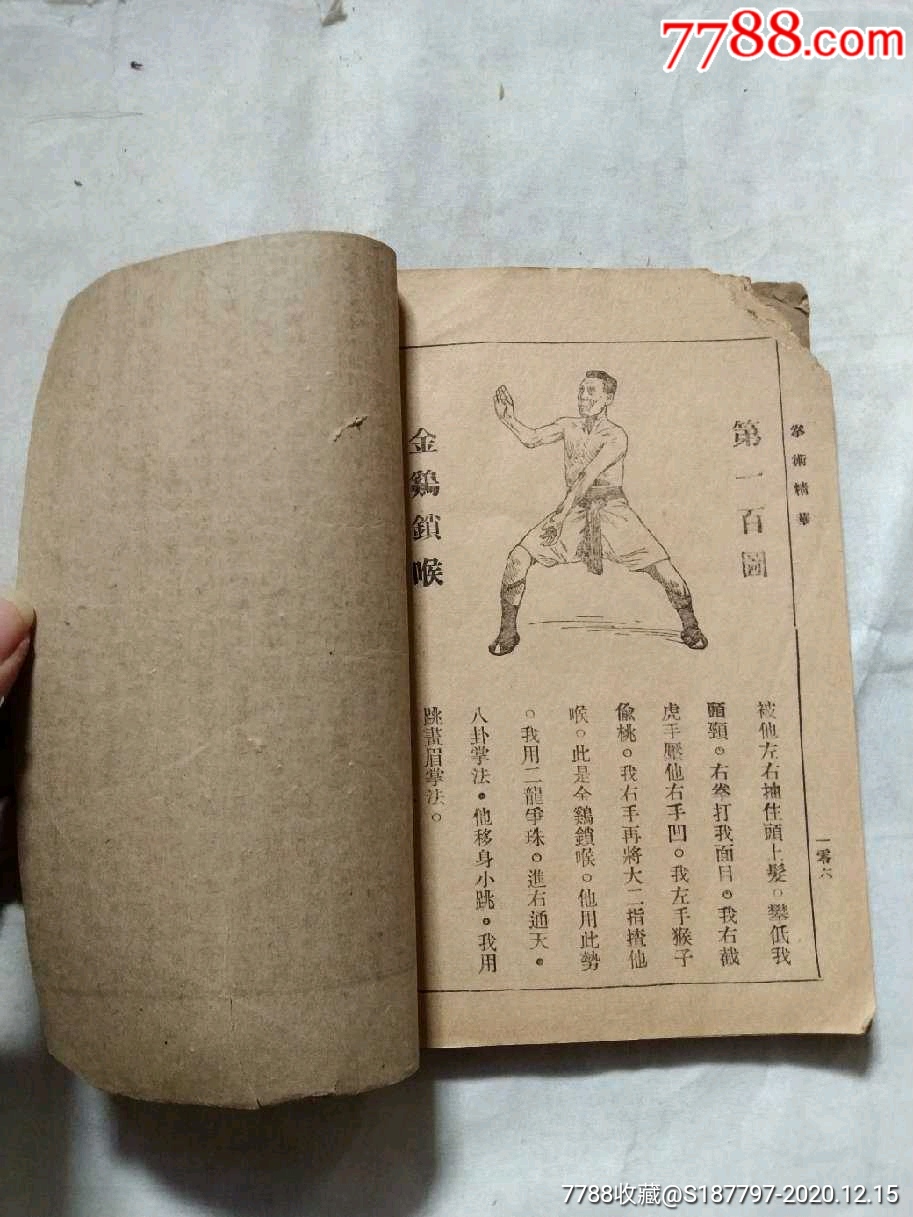 7788.com
拳術精華
一零六
第一百圖
金鷄鎖喉
被他左右抽住頭上髮。攀低我
頭頸。右拳打我面目。我右截
虎手壓他右手凹。我左手猴子
偸桃。我右手再將大二指揸他
喉。此是金鷄鎖喉。他用此勢
。我用二龍爭珠。進右通天。
八卦掌法。他移身小跳。我用
跳畫眉掌法。
7788收藏@S187797-2020.12.15